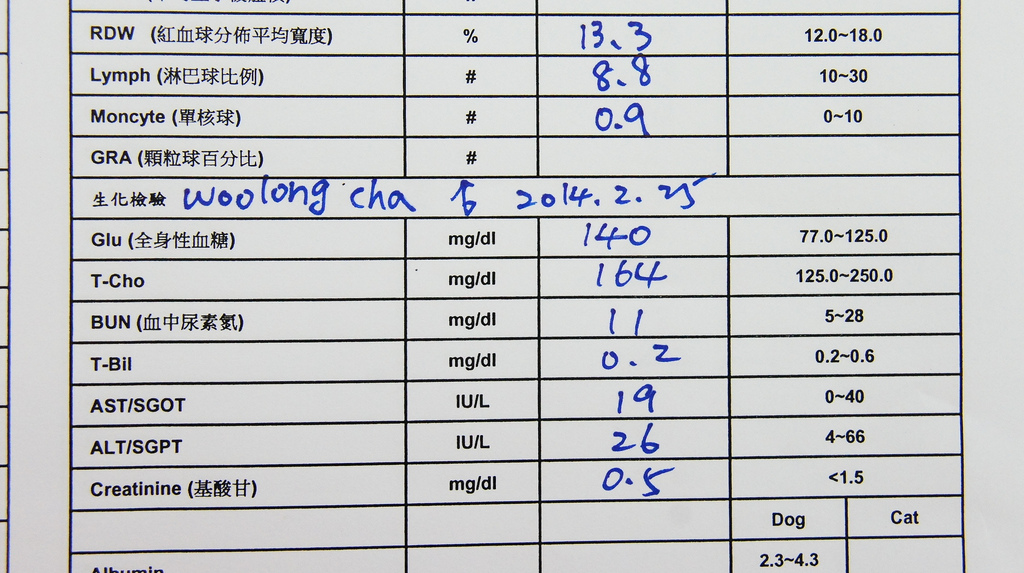 RDW (紅血球分佈平均寬度) % 13.3 12.0~18.0
Lymph (淋巴球比例) # 8.8 10~30
Moncyte (單核球) # 0.9 0~10
GRA (顆粒球百分比) #
生化檢驗 woolong cha 2014.2.25
Glu (全身性血糖) mg/dl 140 77.0~125.0
T-Cho mg/dl 164 125.0~250.0
BUN (血中尿素氮) mg/dl 11 5~28
T-Bil mg/dl 0.2 0.2~0.6
AST/SGOT IU/L 19 0~40
ALT/SGPT IU/L 26 4~66
Creatinine (基酸甘) mg/dl 0.5 <1.5
Dog Cat
Albumin 2.3~4.3